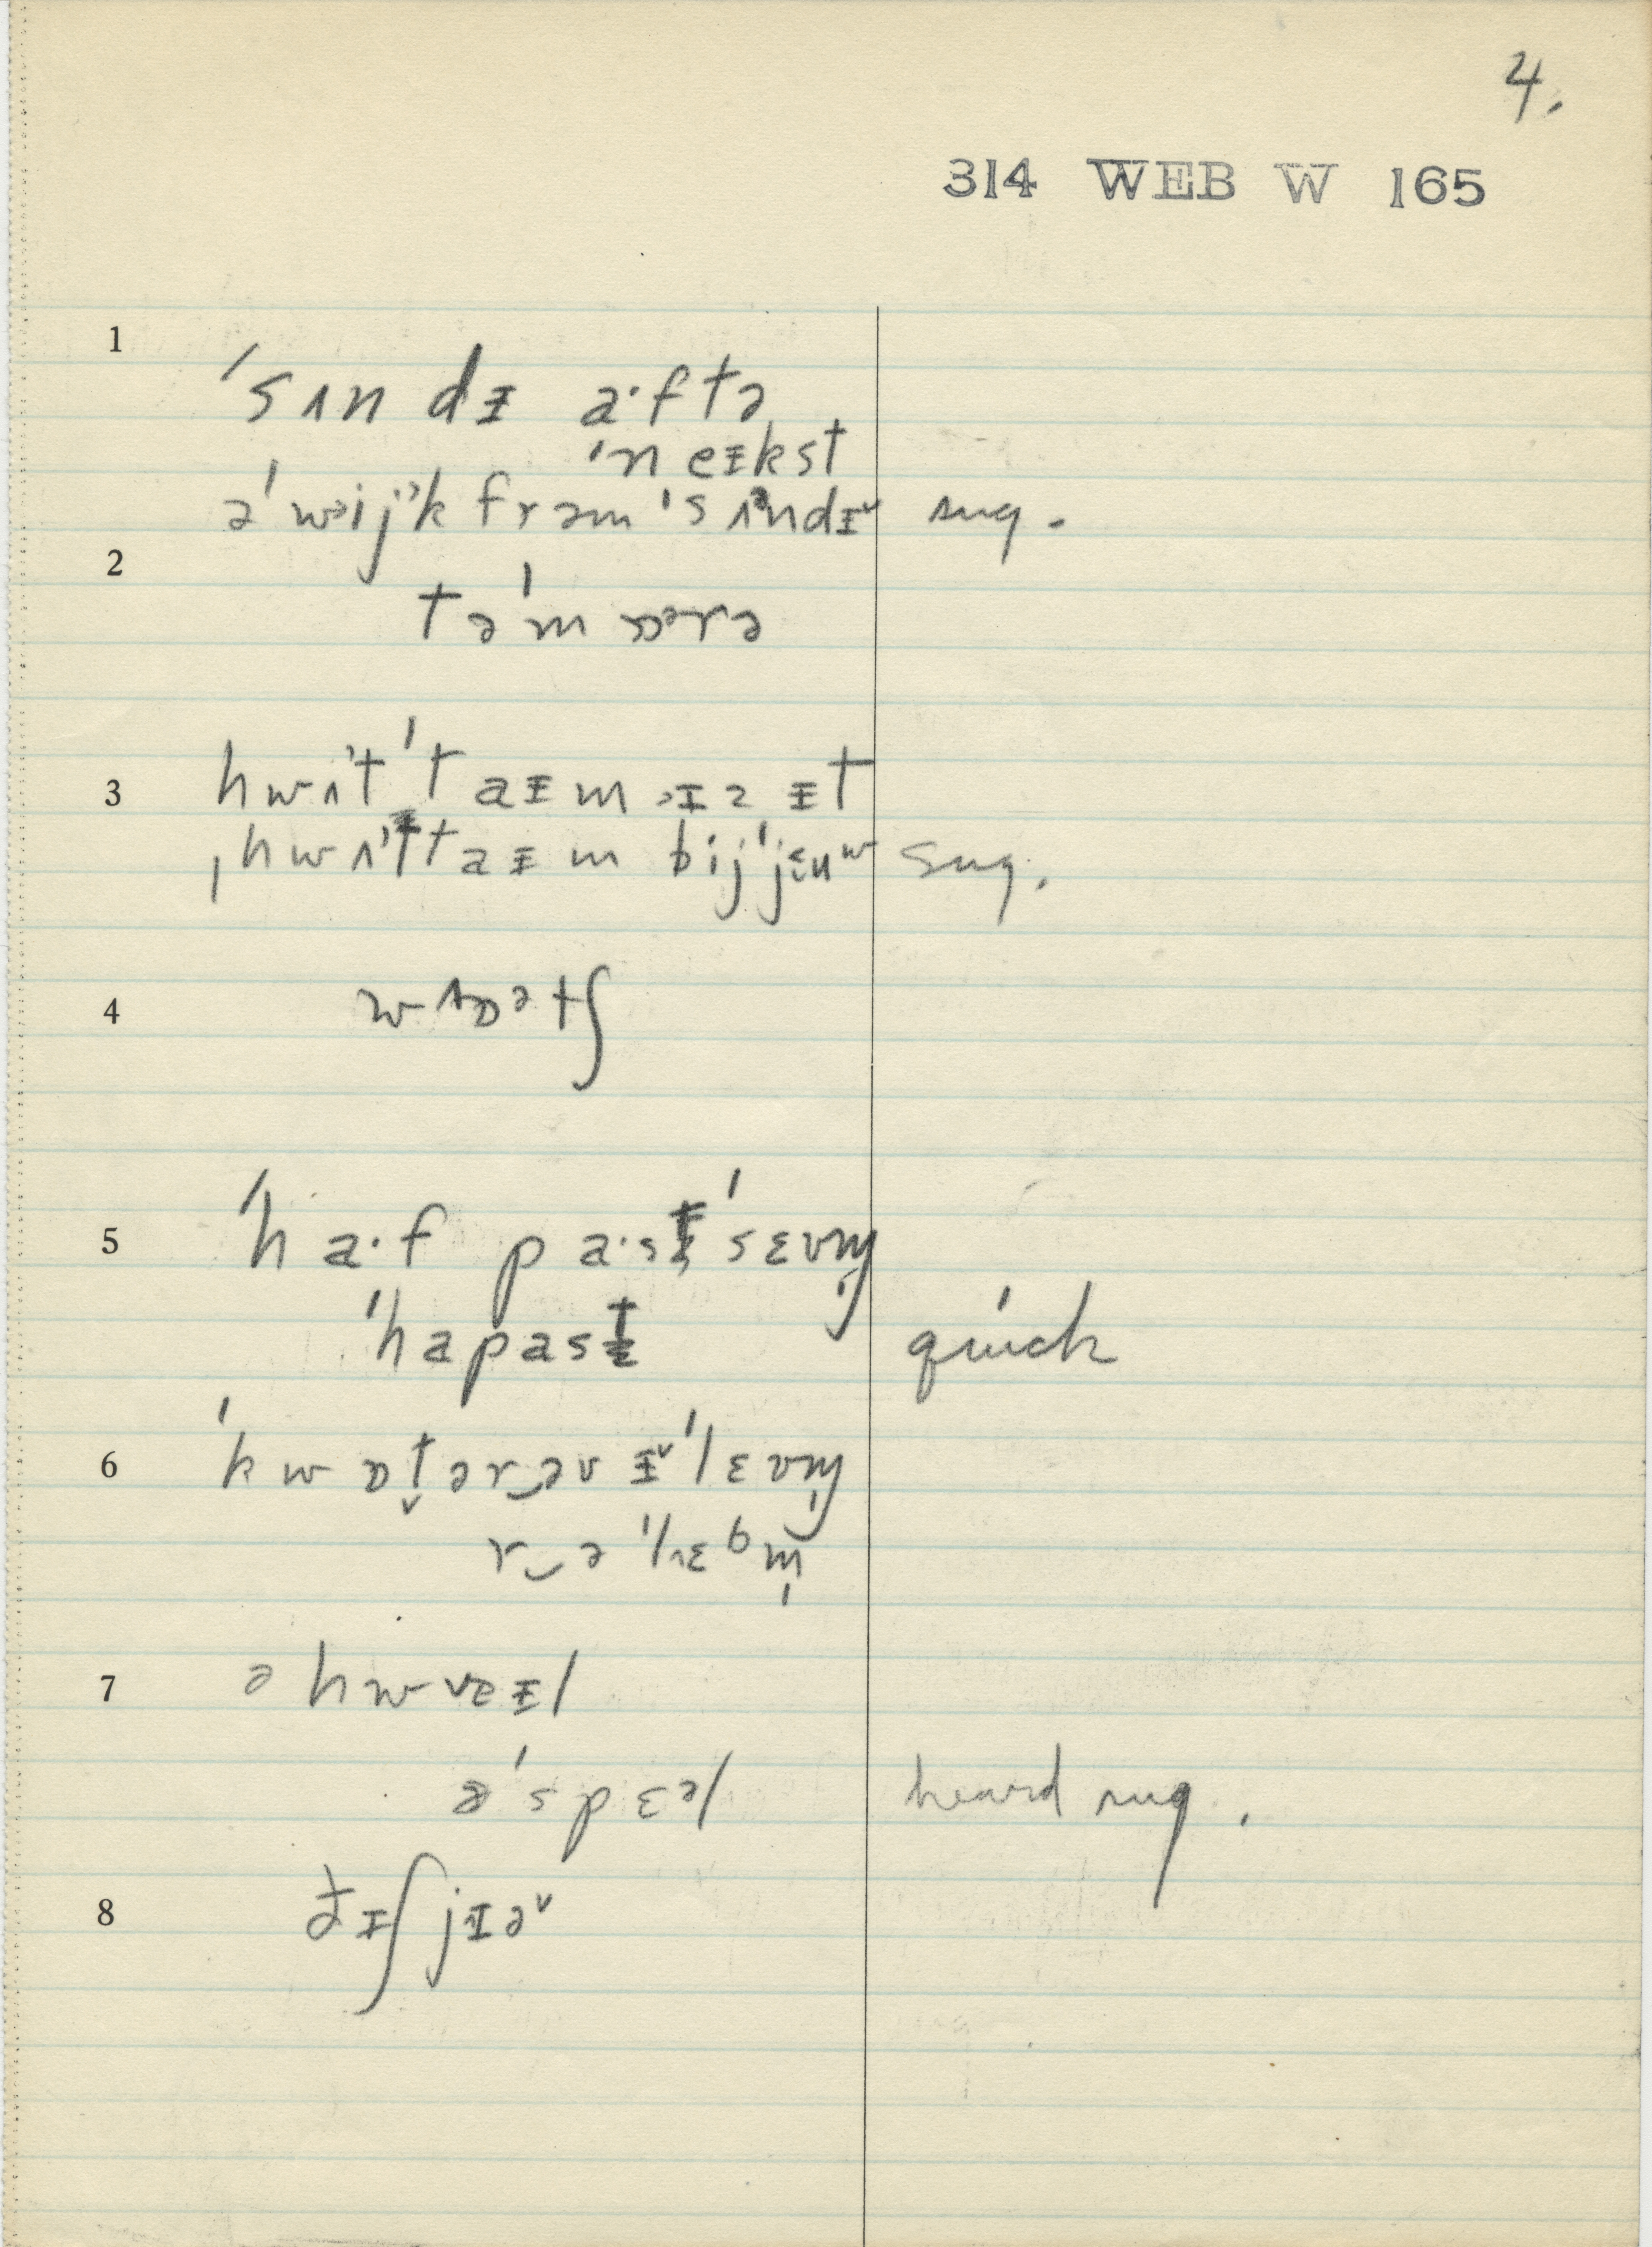 4.
314 WEB W 165
1
ˈsʌn dɪ a·ftə
ˈneɪkst
əˈwijk frəmˈsʌndɪ˅ sug.
2
təˈmɒərə
3
hwʌtˈtaɪm ɪz ɪt
ˌhwʌtˈtaɪm bijˈjɛuʷ sug.
4
wʌɒətʃ
5
ˈha·f pa·stˈsɛvm̩
ˈhapast quick
6
ˈkwɒt̬ərəv ɪ˅ˈlɛvm̩
r‿əˈlɛbm̩
7
ə hwveɪl
əˈspɛəl heard sug.
8
ðɪʃ jɪə˅